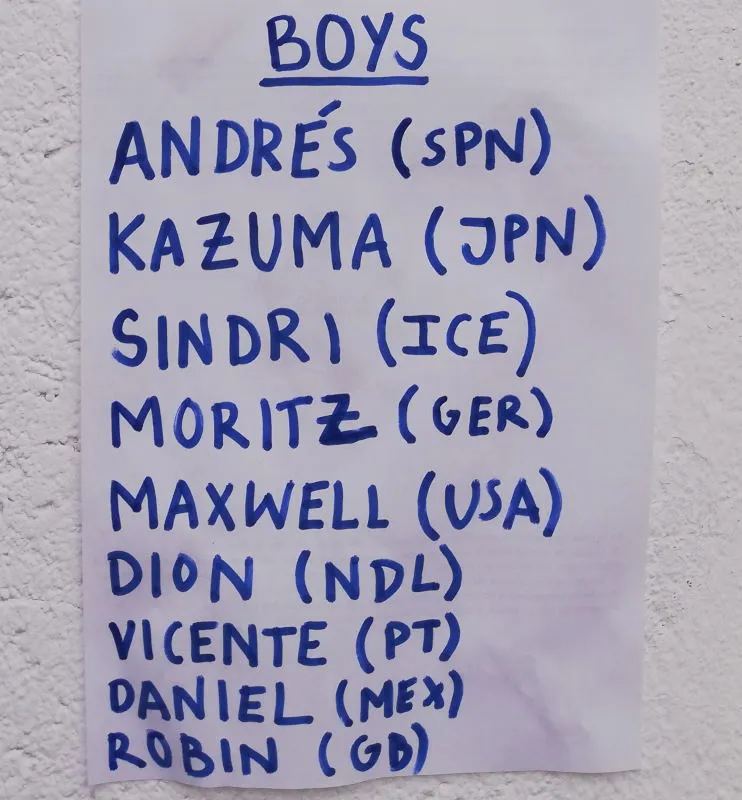 BOYS
ANDRÉS (SPN)
KAZUMA (JPN)
SINDRI (ICE)
MORITZ (GER)
MAXWELL (USA)
DION (NDL)
VICENTE (PT)
DANIEL (MEX)
ROBIN (GB)